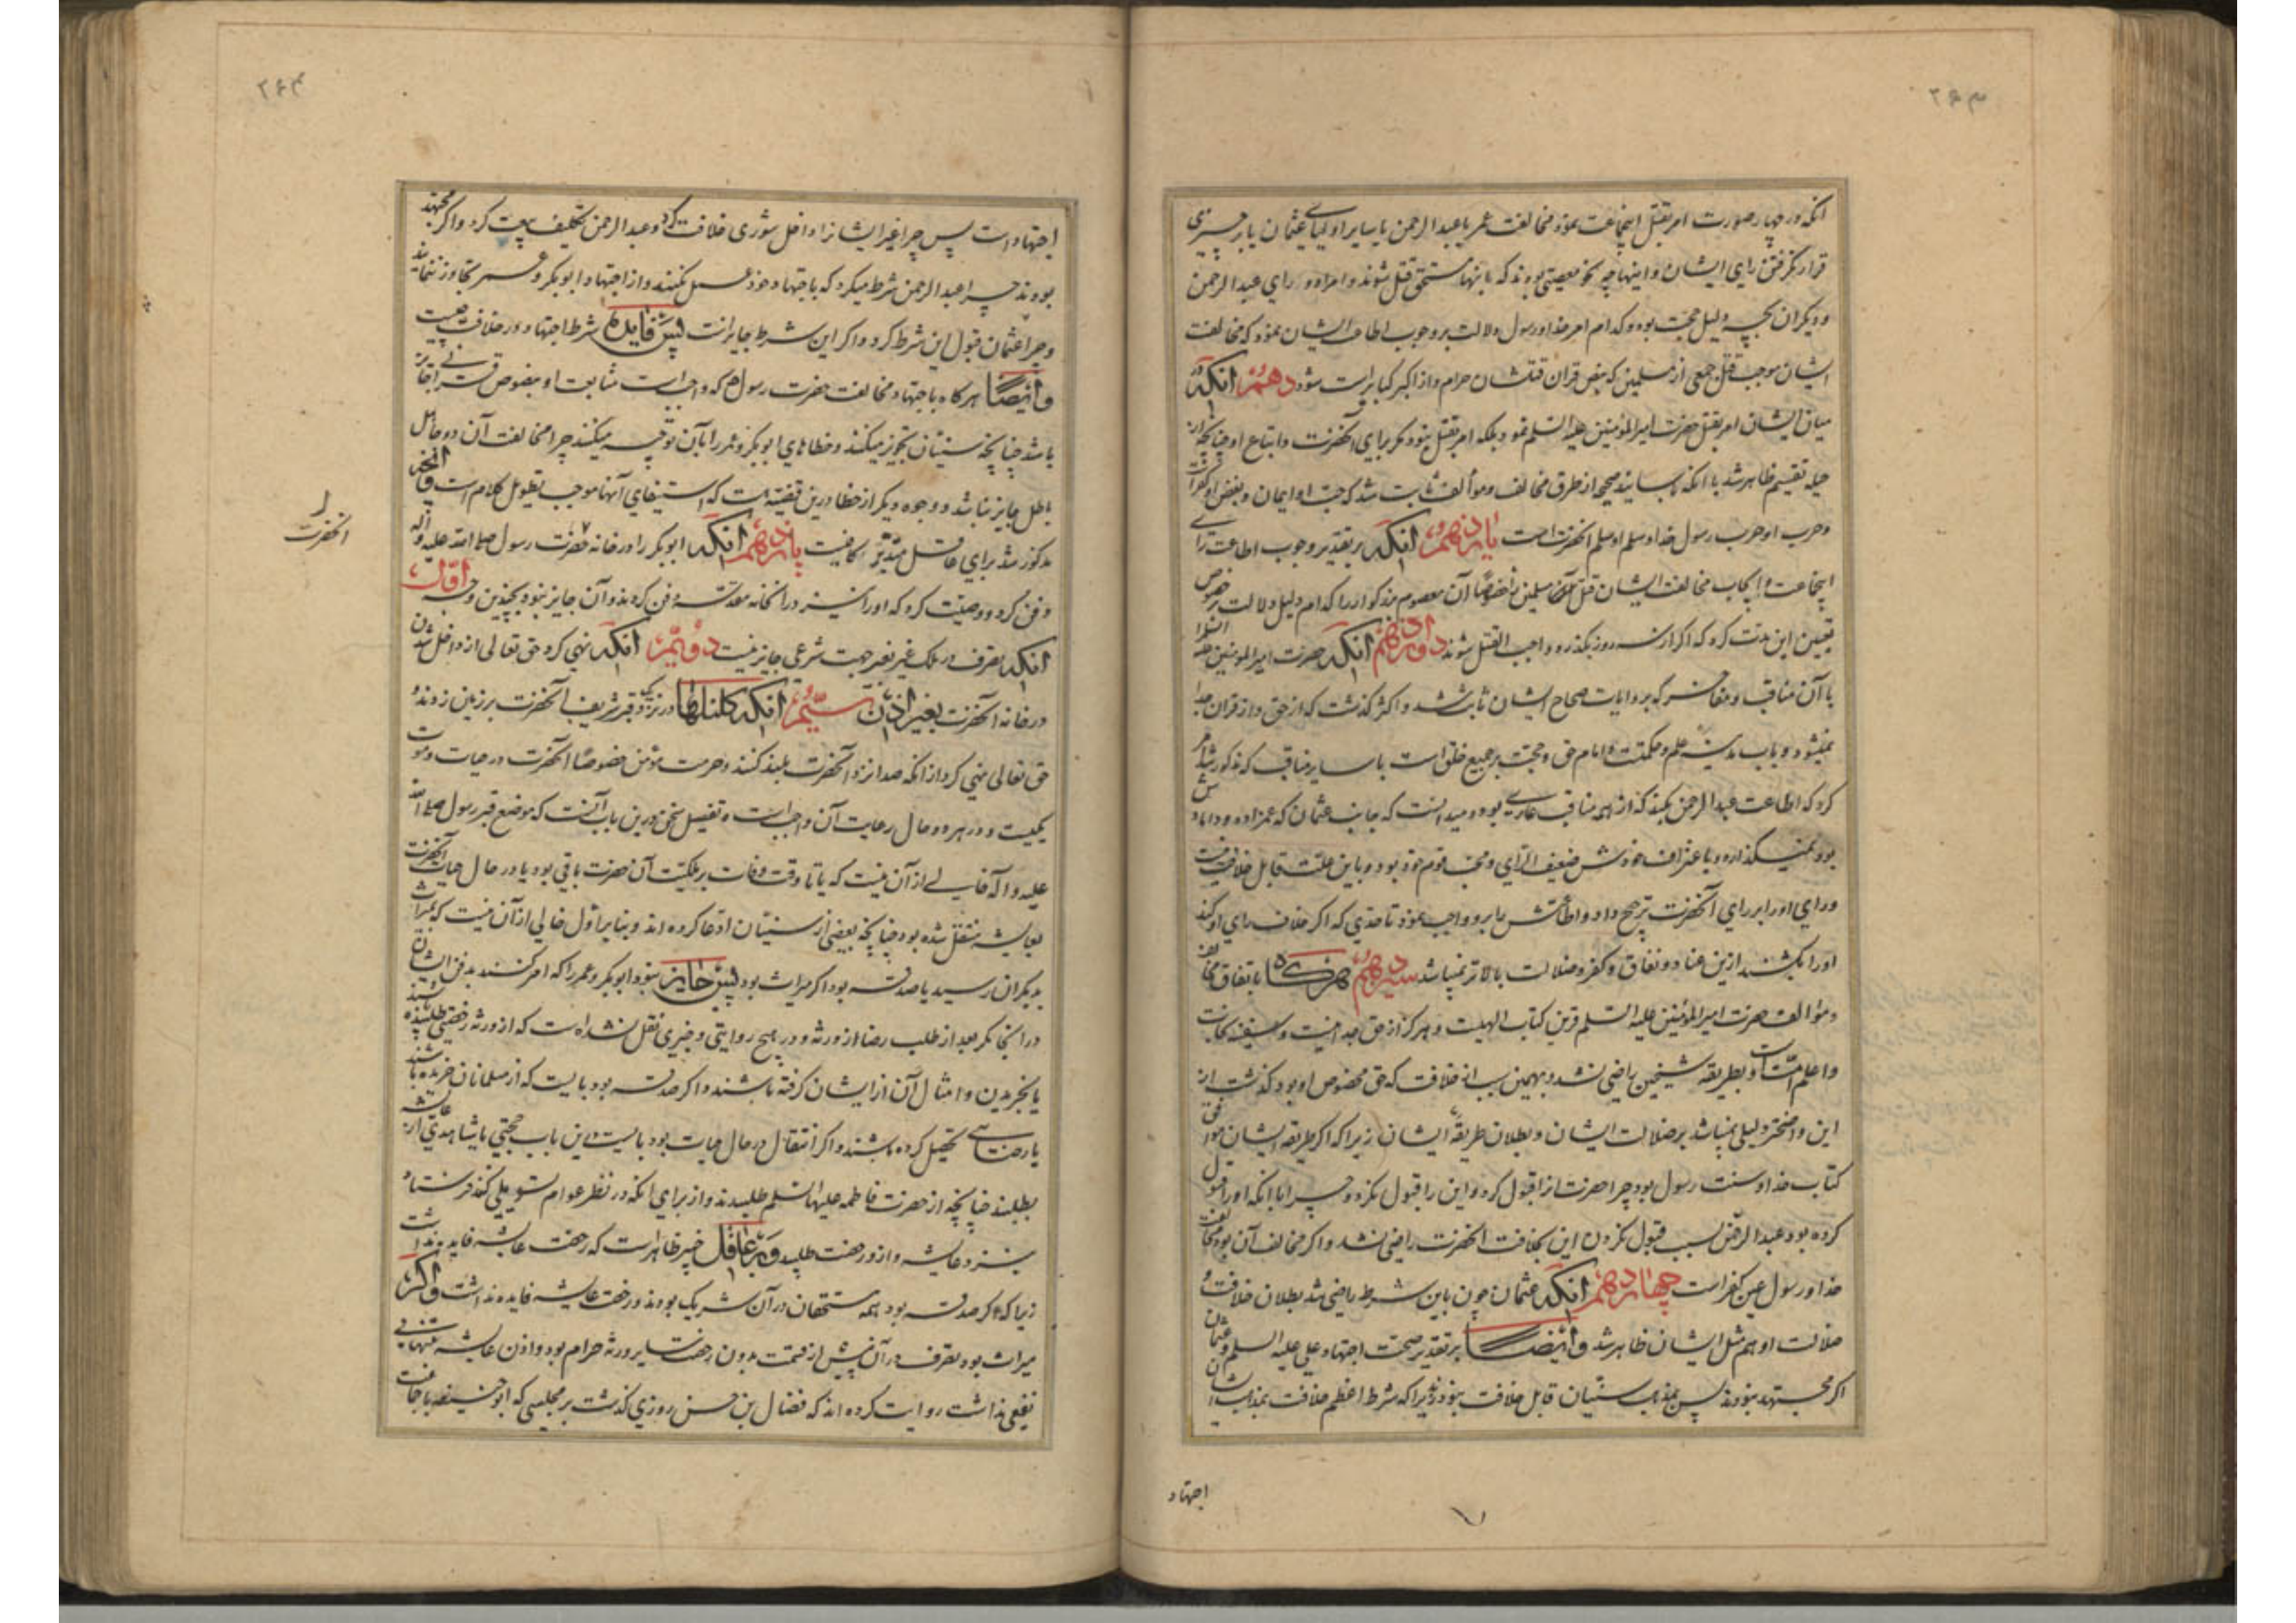 ۲۶۳
انکه در چهار صورت امر بقتل اینجماعت نمود مخالفت عمر یا عبد الرحمن یا سایر اولیای عثمان یا بر چیزی
قرار نگرفتن رای ایشان و اینها چه نحو معصیتی بودند که باینها مستحق قتل شوند و اراده و رای عبد الرحمن
و دیگران بچه دلیل حجت بود و کدام امر خدا و رسول دلالت بر وجوب اطاعت ایشان نمود که مخالفت
ایشان موجب قتل جمعی از مسلمین که بنص قران قتلشان حرام و از اکبر کبایر است شود دهم انکه در
میان ایشان امر بقتل حضرت امیر المؤمنین علیه السلم نمود بلکه امر بقتل نبود مکر برای آنحضرت و اتباع او چنانچه از
حیله تقسیم ظاهر شد با انکه باسانید صحیح از طرق مخالف و موالف ثابت شد که حب او ایمان و بغض او کفر است
و حرب او حرب رسول خدا و سلم او سلم انحضرت است یازدهم انکه بر تقدیر وجوب اطاعت رای
اینجماعت و ایجاب مخالفت ایشان قتل مسلمین خصوصا آن معصوم بزرکوار را کدام دلیل دلالت بر خصوص
تعیین این مدت کرد که اکر از سه روز بکذرد واجب القتل شوند دوازدهم انکه حضرت امیر المومنین علیه السلم را
با آن مناقب و مفاخر که بروایات صحاح ایشان ثابت شد و اکثر کذشت که از حق و از قران جدا
نمیشود و باب مدینه علم و حکمتست و امام حق و حجت بر جمیع خلق است با سایر مناقب که مذکور شد امر
کرد که اطاعت عبد الرحمن بکند که از همه مناقب عاری بود و میدانست که جانب عثمان که عمزاده و دامادش
بود نمیکذارد و باعتراف خودش ضعیف الرای و محب قوم خود بود و باین علت قابل خلافت نیست
و رای او را بر رای آنحضرت ترجیح داد و اطاعتش را برو واجب نمود تا حدی که اکر خلاف رای او کند
او را بکشند ازین عناد و نفاق و کفر و ضلالت بالاتر نمیباشد سیزدهم هرکاه باتفاق مخالف
و مؤالف حضرت امیر المؤمنین علیه السلم قرین کتاب الهیست و هرکز از حق جدا نیست و سفینه نجات
و اعلم امت است و بطریقه شیخین راضی نشد و بهمین سبب از خلافت که حق مخصوص او بود کذشت از
این واضحتر دلیلی نمیباشد بر ضلالت ایشان و بطلان طریقه ایشان زیرا که اکر طریقه ایشان موافق
کتاب خدا و سنت رسول بود چرا حضرت انرا قبول کرد و این را قبول نکرد و چرا با انکه او را قبول
کرده بود عبد الرحمن بسبب قبول نکردن این بخلافت انحضرت راضی نشد و اکر مخالف آن بود مخالفت
خدا و رسول عین کفر است چهاردهم انکه عثمان چون باین شرط راضی شد بطلان خلافت و
ضلالت او هم مثل ایشان ظاهر شد و ایضا بر تقدیر صحت اجتهاد علی علیه السلم و عثمان
اکر مجتهد نبودند پس بمذهب سنیان قابل خلافت نبودند زیرا که شرط اعظم خلافت بمذهب ایشان
اجتهاد
۲۶۴
اجتهاد است پس چرا غیر ایشانرا داخل شوری خلافت کرد و عبد الرحمن تکلیف بیعت کرد و اکر مجتهد
بودند چرا عبد الرحمن شرط میکرد که باجتهاد خود عمل نکنند و از اجتهاد ابو بکر و عمر تجاوز ننمایند
و چرا عثمان قبول این شرط کرد و اکر این شرط جایز است پس فایده شرط اجتهاد در خلافت چیست
و ایضا هرکاه باجتهاد مخالفت حضرت رسول ص که واجبست متابعت او بنصوص قرانی جایز
باشد چنانچه سنیان تجویز میکنند و خطاهای ابو بکر و عمر را بآن توجیه میکنند چرا مخالفت آن دو جاهل
باطل جایز نباشد و وجوه دیکر از خطا درین قضیه هست که استیفای آنها موجب تطویل کلام است و انچه
مذکور شد برای عاقل متدبر کافیست پانزدهم انکه ابو بکر را در خانه حضرت رسول صلی الله علیه و اله
دفن کرد و وصیت کرد که او را نیز در انخانه مقدسه دفن کردند و آن جایز نبود بچندین وجه اول
انکه تصرف در ملک غیر بغیر جهت شرعی جایز نیست دویم انکه نهی کرد حق تعالی از داخل شدن
در خانه آنحضرت بغیر اذن سیم انکه کلنکها در نزدیک قبر شریف آنحضرت بر زمین زدند و
حق تعالی نهی کرد از انکه صدا نزد آنحضرت بلند کنند و حرمت مؤمن خصوصا آنحضرت در حیات و موت
یکیست و در هر دو حال رعایت آن واجب است و تفصیل سخن درین باب آنست که موضع قبر رسول صلی الله
علیه و اله خالی از آن نیست که یا تا وقت وفات بر ملکیت آن حضرت باقی بود یا در حال حیات آنحضرت
بعایشه منتقل شده بود چنانچه بعضی از سنیان ادعا کرده اند و بنابر اول خالی از آن نیست که بمیراث
بدیکران رسید یا صدقه بود اکر میراث بود پس جایز نبود ابو بکر و عمر را که امر کنند بدفن ایشان
در انجا مکر بعد از طلب رضا از ورثه و در هیچ روایتی و خبری نقل نشده است که از ورثه رخصتی طلبیده باشند
یا بخریدن و امثال آن از ایشان کرفته باشند و اکر صدقه بود بایست که از مسلمانان خریده باشند
یا رضا تحصیل کرده باشند و اکر انتقال در حال حیات بود بایست در این باب حجتی یا شاهدی از عایشه
بطلبند چنانچه از حضرت فاطمه علیها السلم طلبیدند و از برای انکه در نظر عوام تسویلی کند فرستاد
بنزد عایشه و ازو رخصت طلبید و بر عاقل خبیر ظاهر است که رخصت عایشه فایده نداشت
زیرا که اکر صدقه بود همه مستحقان در آن شریک بودند و رخصت عایشه فایده نداشت و اکر
میراث بود تصرف در آن پیش از قسمت بدون رخصت سایر ورثه حرام بود و اذن عایشه بتنهایی
نفعی نداشت روایت کرده اند که فضال بن حسن روزی کذشت بر مجلسی که ابو حنیفه با جماعت
انحضرت